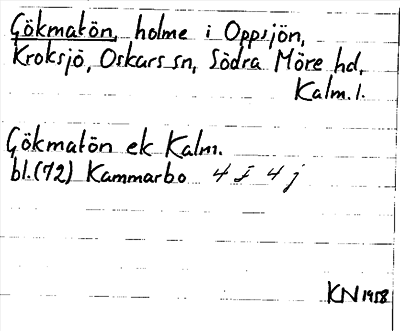 Gökmatön, holme i Oppsjön,
Kroksjö, Oskars sn, Södra Möre hd,
Kalm. l.
Gökmatön ek Kalm.
bl. (72) Kammarbo 4 F 4 j
KN 1958